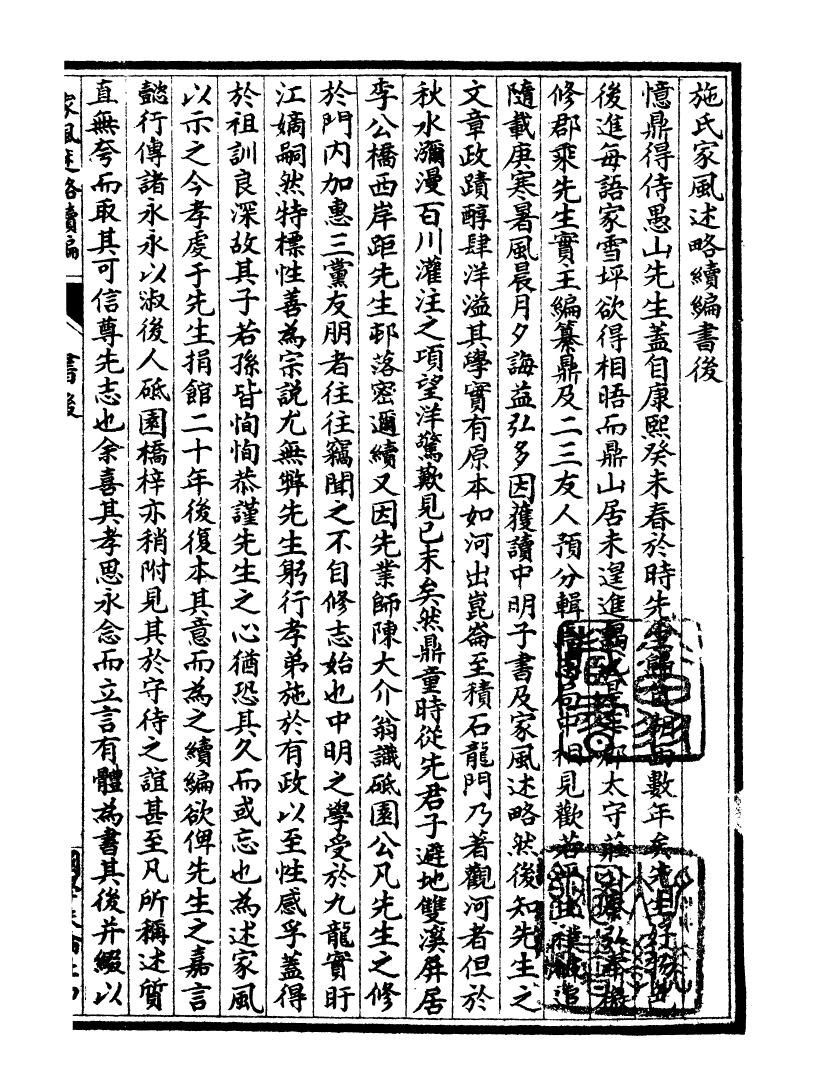 施氏家風述略續編書後
憶鼎得侍愚山先生蓋自康熙癸未春於時先數年矣先生
後進每語家雪坪欲得相晤而鼎山居未遑進太守莊
修郡乘先生實主編纂鼎及二三友人預分輯局中相見歡若平
隨載庚寒暑風晨月夕誨益弘多因獲讀中明子書及家風述略然後知先生之
文章政蹟醇肆洋溢其學實有原本如河出崑崙至積石龍門乃著觀河者但於
秋水瀰漫百川灌注之項望洋驚歎見已末矣然鼎童時從先君子避地雙溪屏居
李公橋西岸距先生邨落密邇續又因先業師陳大介翁識砥園公凡先生之修
於門内加惠三黨友朋者往往竊聞之不自修志始也中明之學受於九龍實盱
江嫡嗣然特標性善為宗說尤無弊先生躬行孝弟施於有政以至性感孚蓋得
於祖訓良深故其子若孫皆恂恂恭謹先生之心猶恐其久而或忘也為述家風
以示之今孝虔于先生捐館二十年後復本其意而為之續編欲俾先生之嘉言
懿行傳諸永永以淑後人砥園橋梓亦稍附見其於守待之誼甚至凡所稱述質
直無夸而取其可信尊先志也余喜其孝思永念而立言有體為書其後并綴以
家風述略續編 書後